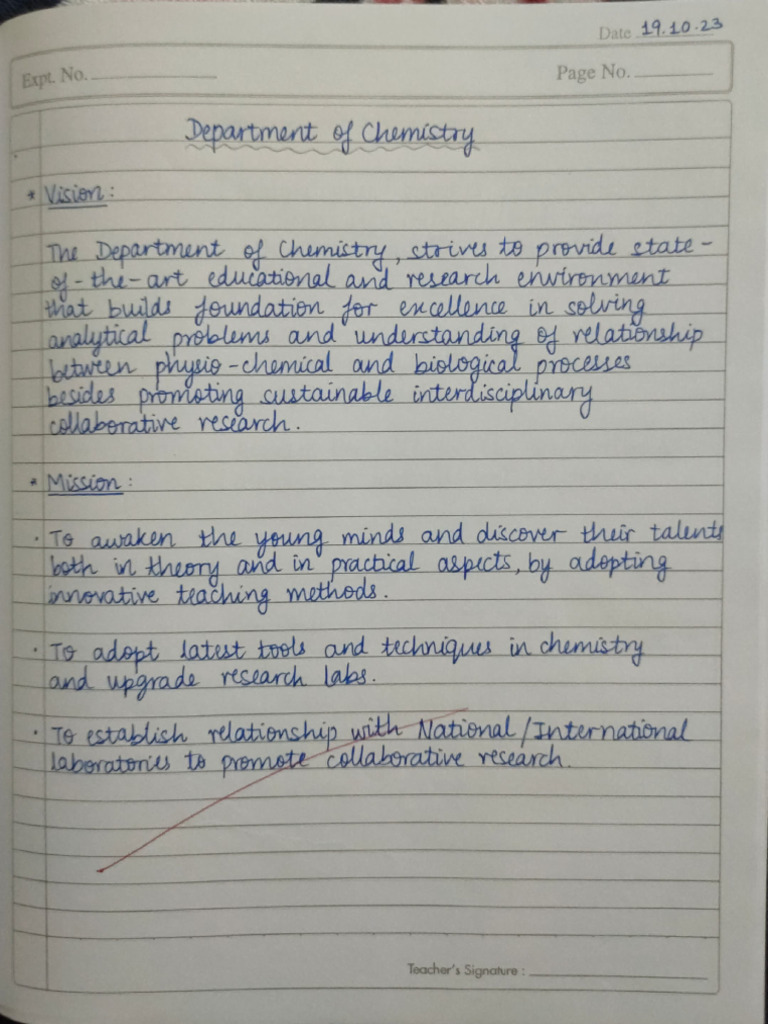 Date 19.10.23
Expt. No.
Page No.
Department of Chemistry
* Vision :
The Department of Chemistry, strives to provide state-
of-the-art educational and research environment
that builds foundation for excellence in solving
analytical problems and understanding of relationship
between physio-chemical and biological processes
besides promoting sustainable interdisciplinary
collaborative research.
* Mission :
· To awaken the young minds and discover their talents
both in theory and in practical aspects, by adopting
innovative teaching methods.
· To adopt latest tools and techniques in chemistry
and upgrade research labs.
· To establish relationship with National/International
laboratories to promote collaborative research.
Teacher's Signature :